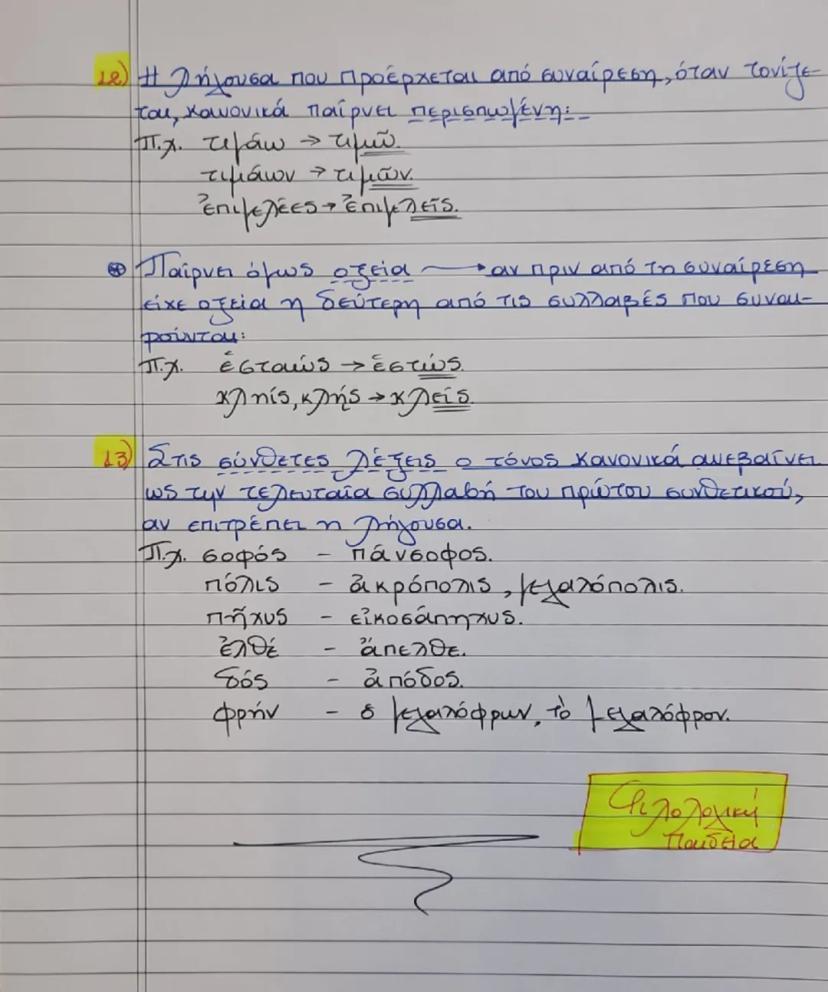 12) Η λήγουσα που προέρχεται από συναίρεση, όταν τονίζε-
ται, κανονικά παίρνει περισπωμένη:
Π.χ. τιμάω → τιμῶ.
τιμάων → τιμῶν.
ἐπιμελέες → ἐπιμελεῖς.
⊕ Παίρνει όμως οξεία → αν πριν από τη συναίρεση
είχε οξεία η δεύτερη από τις συλλαβές που συναι-
ρούνται:
Π.χ. ἑσταώς → ἑστώς.
κληίς, κλῄς → κλείς.
13) Στις σύνθετες λέξεις ο τόνος κανονικά ανεβαίνει
ως την τελευταία συλλαβή του πρώτου συνθετικού,
αν επιτρέπει η λήγουσα.
Π.χ. σοφός - πάνσοφος.
πόλις - ἀκρόπολις, μεγαλόπολις.
πῆχυς - εἰκοσάπηχυς.
ἐλθέ - ἄπελθε.
δός - ἀπόδος.
φρήν - ὁ μεγαλόφρων, τὸ μεγαλόφρον.
Φιλολογική
Παιδεία